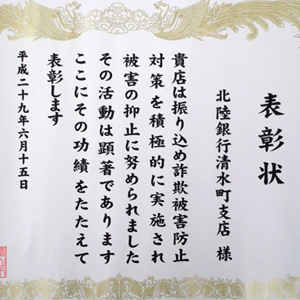 表彰状
北陸銀行清水町支店 様
貴店は振り込め詐欺被害防止
対策を積極的に実施され
被害の抑止に努められました
その活動は顕著であります
ここにその功績をたたえて
表彰します
平成二十九年六月十五日